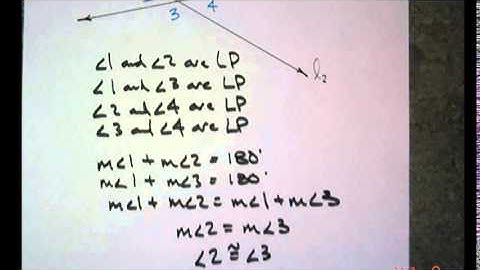 3 4
l₂
∠1 and ∠2 are LP
∠1 and ∠3 are LP
∠2 and ∠4 are LP
∠3 and ∠4 are LP
m∠1 + m∠2 = 180°
m∠1 + m∠3 = 180°
m∠1 + m∠2 = m∠1 + m∠3
m∠2 = m∠3
∠2 ≅ ∠3